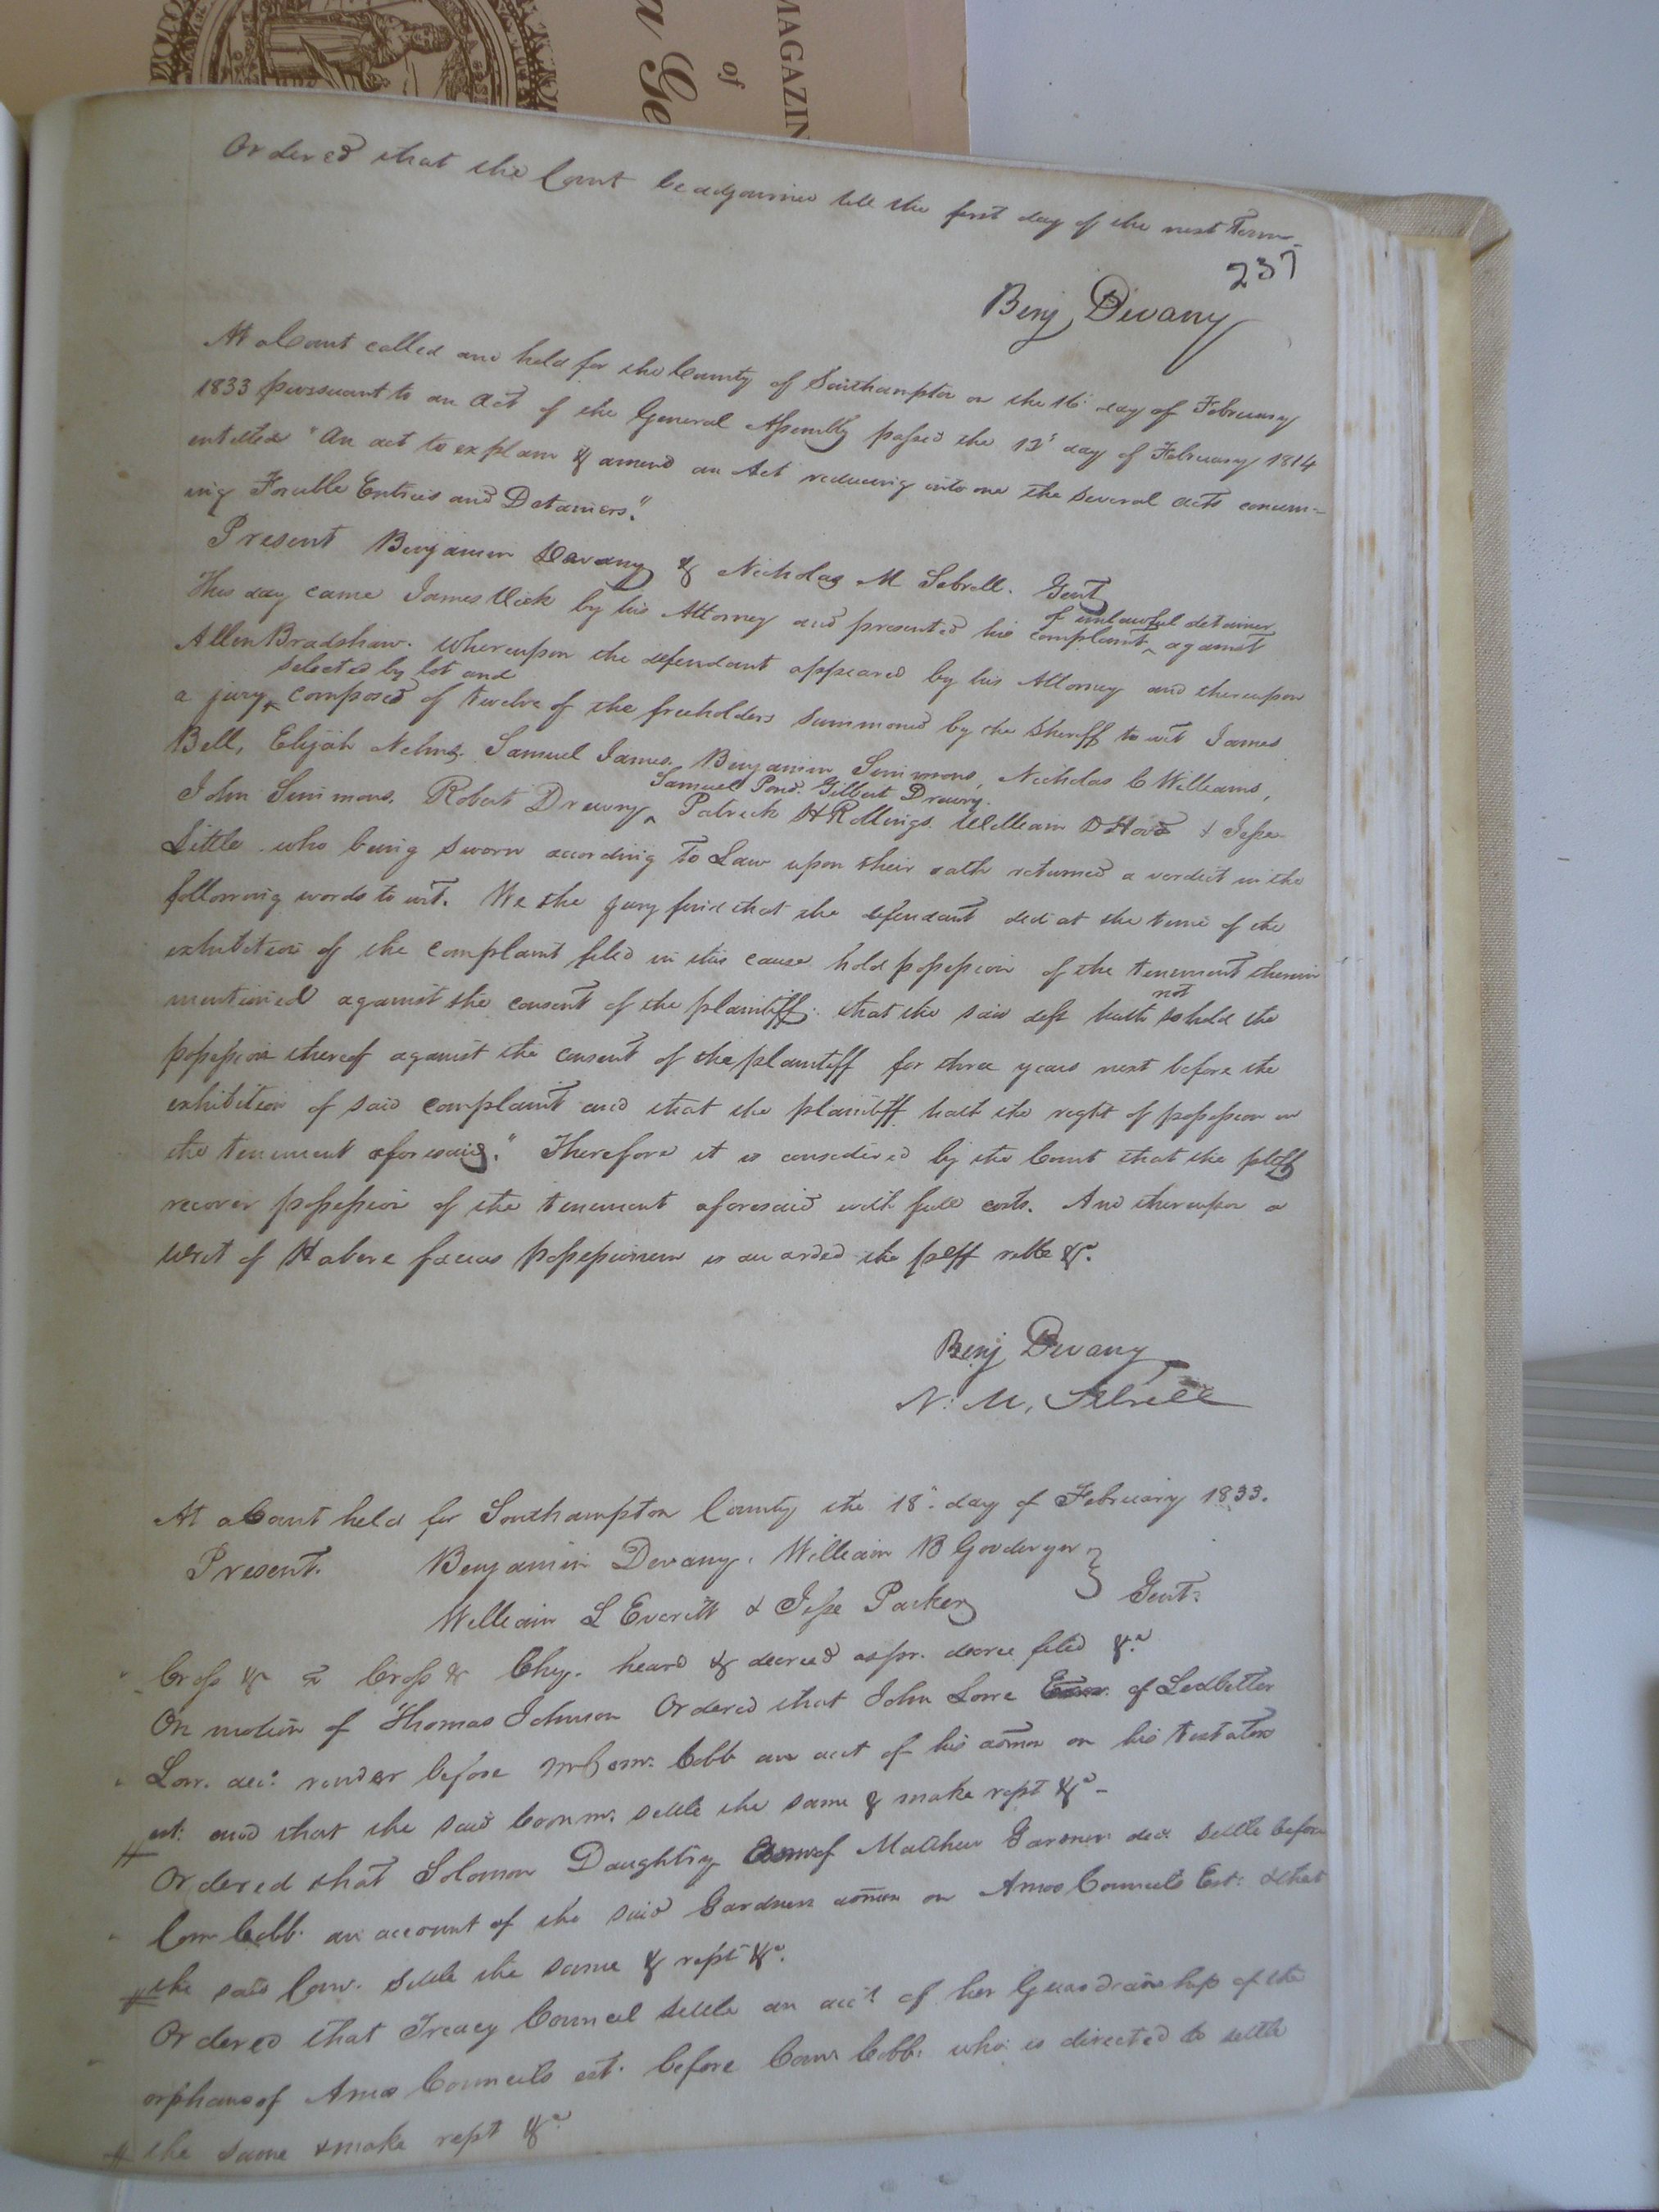 MAGAZIN
of
a Ge
Ordered that the Court be adjourned till the first day of the next Term
237
Benj Devany
At a Court called and held for the County of Southampton on the 16 day of February
1833 pursuant to an Act of the General Assembly passed the 12 day of February 1814
entitled "An act to explain & amend an Act reducing into one the several acts concern=
ing Forcible Entries and Detainers."
Present Benjamin Devany & Nicholas M Sebrell. Gent
This day came James Vick by his Attorney and presented his complaint ^ of unlawful detainer against
Allen Bradshaw. Whereupon the defendant appeared by his Attorney and thereupon
a jury ^ selected by lot and composed of twelve of the freeholders summoned by the Sheriff to wit James
Bell, Elijah Nelms. Samuel James. Benjamin Simmons, Nicholas C Williams,
John Simmons. Robert Drewry ^ Samuel Pond. Gilbert Drewry. Patrick H Rollings. William D Hood & Jesse
Little who being sworn according to Law upon their oath returned a verdict in the
following words to wit. We the jury find that the defendant did at the time of the
exhibition of the complaint filed in this cause hold possession of the tenement therein
mentioned against the consent of the plaintiff: that the said deft hath not so held the
possession thereof against the consent of the plaintiff for three years next before the
exhibition of said complaint and that the plaintiff hath the right of possession in
the tenement aforesaid." Therefore it is considered by the Court that the pltff
recover possession of the tenement aforesaid with full costs. And thereupon a
writ of Habere facias possessionem is awarded the plff retble &c.
Benj Devany
N. M, Sebrell
At a Court held for Southampton County the 18. day of February 1833.
Present. Benjamin Devany. William B Goodwyn
William L Everitt & Jesse Parker } Gent:
Cross & vs Cross & Chy. heard & decreed as pr. decree filed &c
On motion of Thomas Johnson Ordered that John Lowe Exor. of Ledbetter
Low. decd. render before Comr. Cobb an acct of his admon on his testators
est: and that the said Comm. settle the same & make rept &c -
Ordered that Solomon Daughtry Admr of Matthew Gardner decd settle before
Com Cobb. an account of the said Gardners admon on Amos Councils Est: & that
the said Com. settle the same & rept &c.
Ordered that Treacy Council settle an acct of her Guardianship of the
orphans of Amos Councils est. before Comr Cobb. who is directed to settle
the same & make rept &c